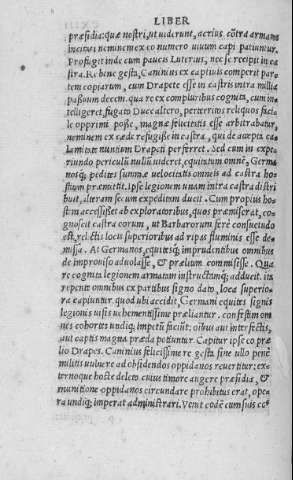 LIBER
præsidia: quæ nostri, ut uiderunt, acrius cōtra armatos
incitati neminem ex eo numero uiuum capi patiuntur.
Profugit inde cum paucis Luterius, nec se recipit in ca
stra. Re bene gesta, Caninius ex captiuis comperit par
tem copiarum, cum Drapete esse in castris intra millia
passuum decem. qua re ex compluribus cognita, cum in
telligeret, fugato Duce altero, perterritos reliquos facil
le opprimi posse, magnæ felicitatis esse arbitrabatur,
neminem ex cæde refugisse in castra, qui de accepta ca
lamitate nuntium Drapeti perferret. Sed cum in expe
riundo periculū nullū uideret, equitatum omnē, Germa
nosq; pedites summæ uelocitatis omneis ad castra ho
stium præmittit. Ipse legionem unam intra castra distri
buit, alteram secum expeditam ducit. Cum propius ho
stem accessisset ab exploratoribus, quos præmiserat, co
gnoscit castra eorum, ut Barbarorum ferè consuetudo
est, relictis locis superioribus ad ripas fluminis esse de
missa. At Germanos, equitesq; imprudentibus omnibus
de improuiso aduolasse, & prælium commisisse. Qua
re cognita legionem armatam instructamq; adducit. ita
repente omnibus ex partibus signo dato, loca superio
ra capiuntur. quod ubi accidit, Germani equites signis
legionis uisis uehementissime præliantur. confestim om
nes cohortes undiq; impetū faciūt: oībus aut interfectis,
aut captis magna præda potiuntur. Capitur ipse eo præ
lio Drapes. Caninius felicissime re gesta sine ullo penè
militis uulnere ad obsidendos oppidanos reuertitur: ex
ternoque hoste deleto cuius timore augere præsidia, &
munitione oppidanos circundare prohibitus erat, opera
undiq; imperat administrari. Venit eodē cum suis co